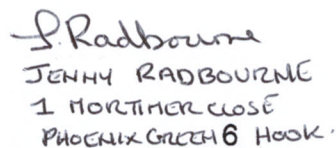 J. Radbourne
JENNY RADBOURNE
1 MORTIMER CLOSE
PHOENIX GREEN 6 HOOK.